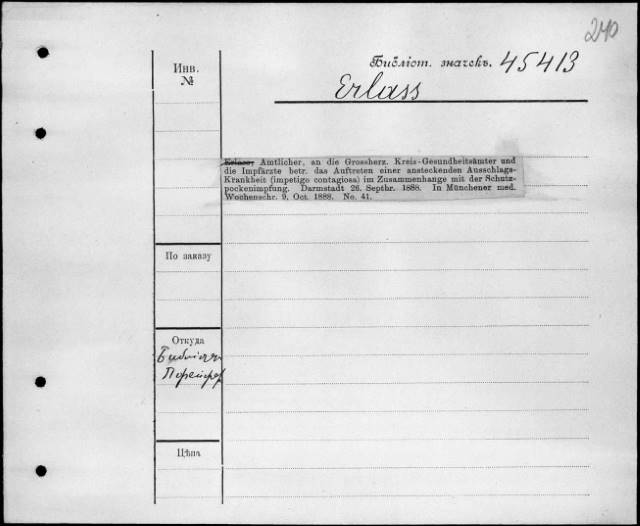 240
Инв.
№
Библіот. значекъ. 45413
Erlass
Erlass, Amtlicher, an die Grossherz. Kreis-Gesundheitsämter und
die Impfärzte betr. das Auftreten einer ansteckenden Ausschlags-
Krankheit (impetigo contagiosa) im Zusammenhange mit der Schutz-
pockenimpfung. Darmstadt 26. Septbr. 1888. In Münchener med.
Wochenschr. 9. Oct. 1888. No. 41.
По заказу
Откуда
Цѣна